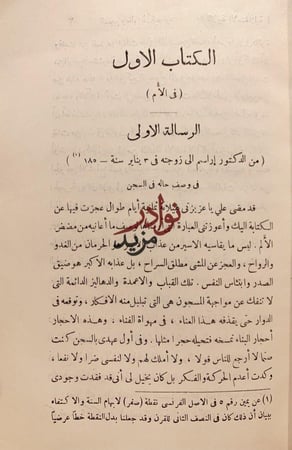 الكتاب الاول
( فى الأم )
الرسالة الاولى
( من الدكتور إراسم الى زوجته فى ٣ يناير سنة – ١٨٥ (١) )
فى وصف حاله فى السجن
قد مضى على يا عزيزتى ثمانية أيام طوال عجزت فيها عن
الكتابة اليك وأعوزتنى العبارة وصف ما أعانيه من مضض
الألم . ليس ما يقاسيه الاسير من الحرمان من الغدو
والرواح ، والعجز عن المشى مطلق السراح ، بل عذابه الاكبر هو ضيق
الصدر وابتئاس النفس . تلك القباب والاعمدة والدهاليز الدائمة التى
لا تنفك عن مواجهة المسجون هى التى تبلبل منه الافكار ، وتوقعه فى
الدوار حتى يقذفه هذا العناء ، فى مهواة الفناء ، وهذه الاحجار
أحجار البناء تمسخه فتحيله حجرا مثلها . وفى أول عهدى بالسجن كنت
ضالا لا أرجع للناس قولا ، ولا أملك لهم ولا لنفسى ضرا ولا نفعا ،
وكدت أعدم الحركة والفكر بل كان يخيل لى أنى قد فقدت وجودى
(١) عن يمين رقم ٥ فى الاصل الفرنسى نقطة (صفر) لابهام السنة والاكتفاء
ببيان أن ذلك كان فى النصف الثانى للقرن وقد جعلنا بدل النقطة خطا عرضيا
نوادر
مزيد